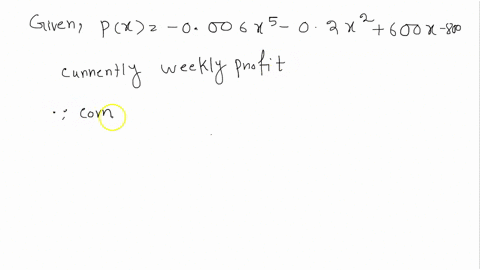 Given, P(x) = -0.006x⁵ - 0.2x² + 600x - 800
currently weekly profit
∵ com